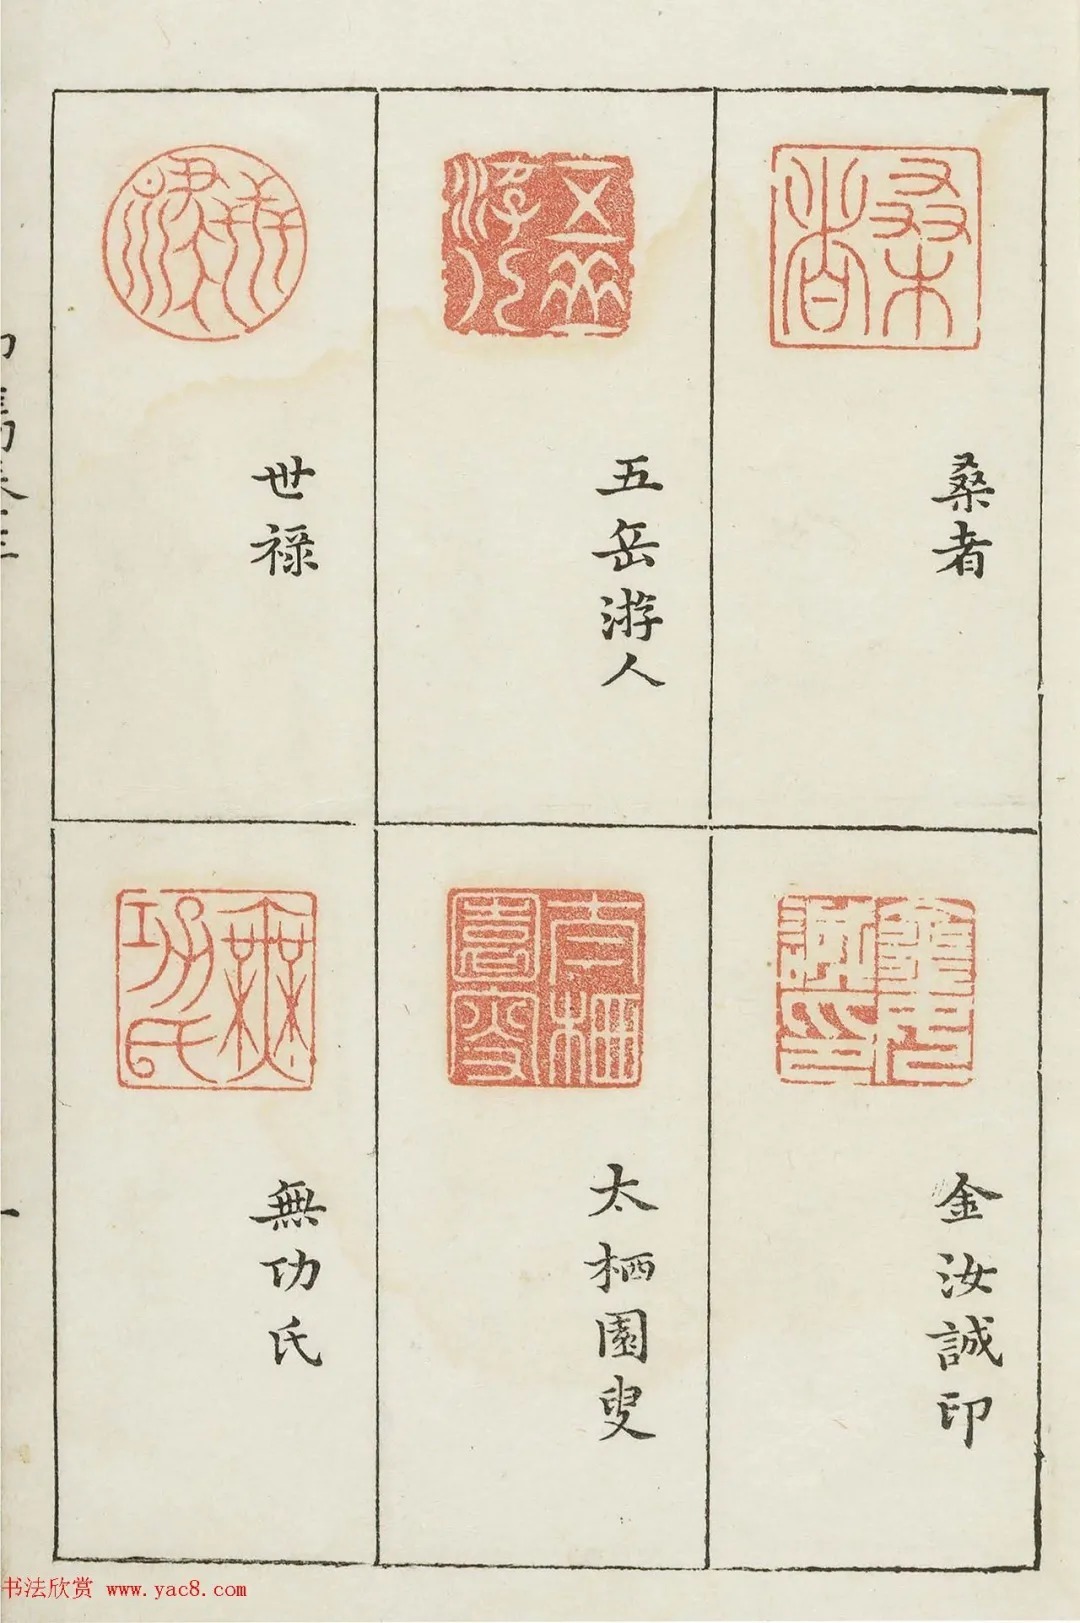 桑者
五岳游人
世禄
金汝誠印
太栖園叟
無功氏
书法欣赏 www.yac8.com